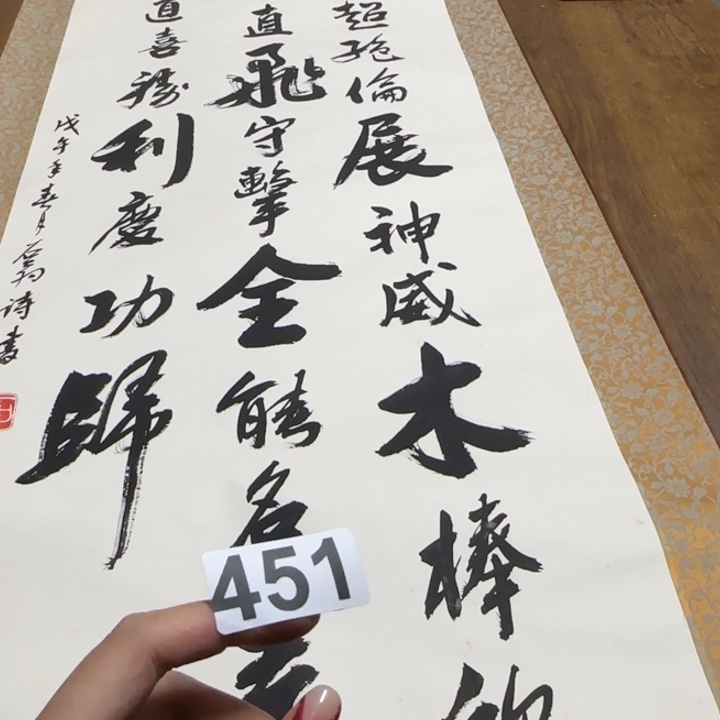 超絶倫展神威木棒
直飛守擊全能名
直喜勝利慶功歸
戊午年春月 詩書
451